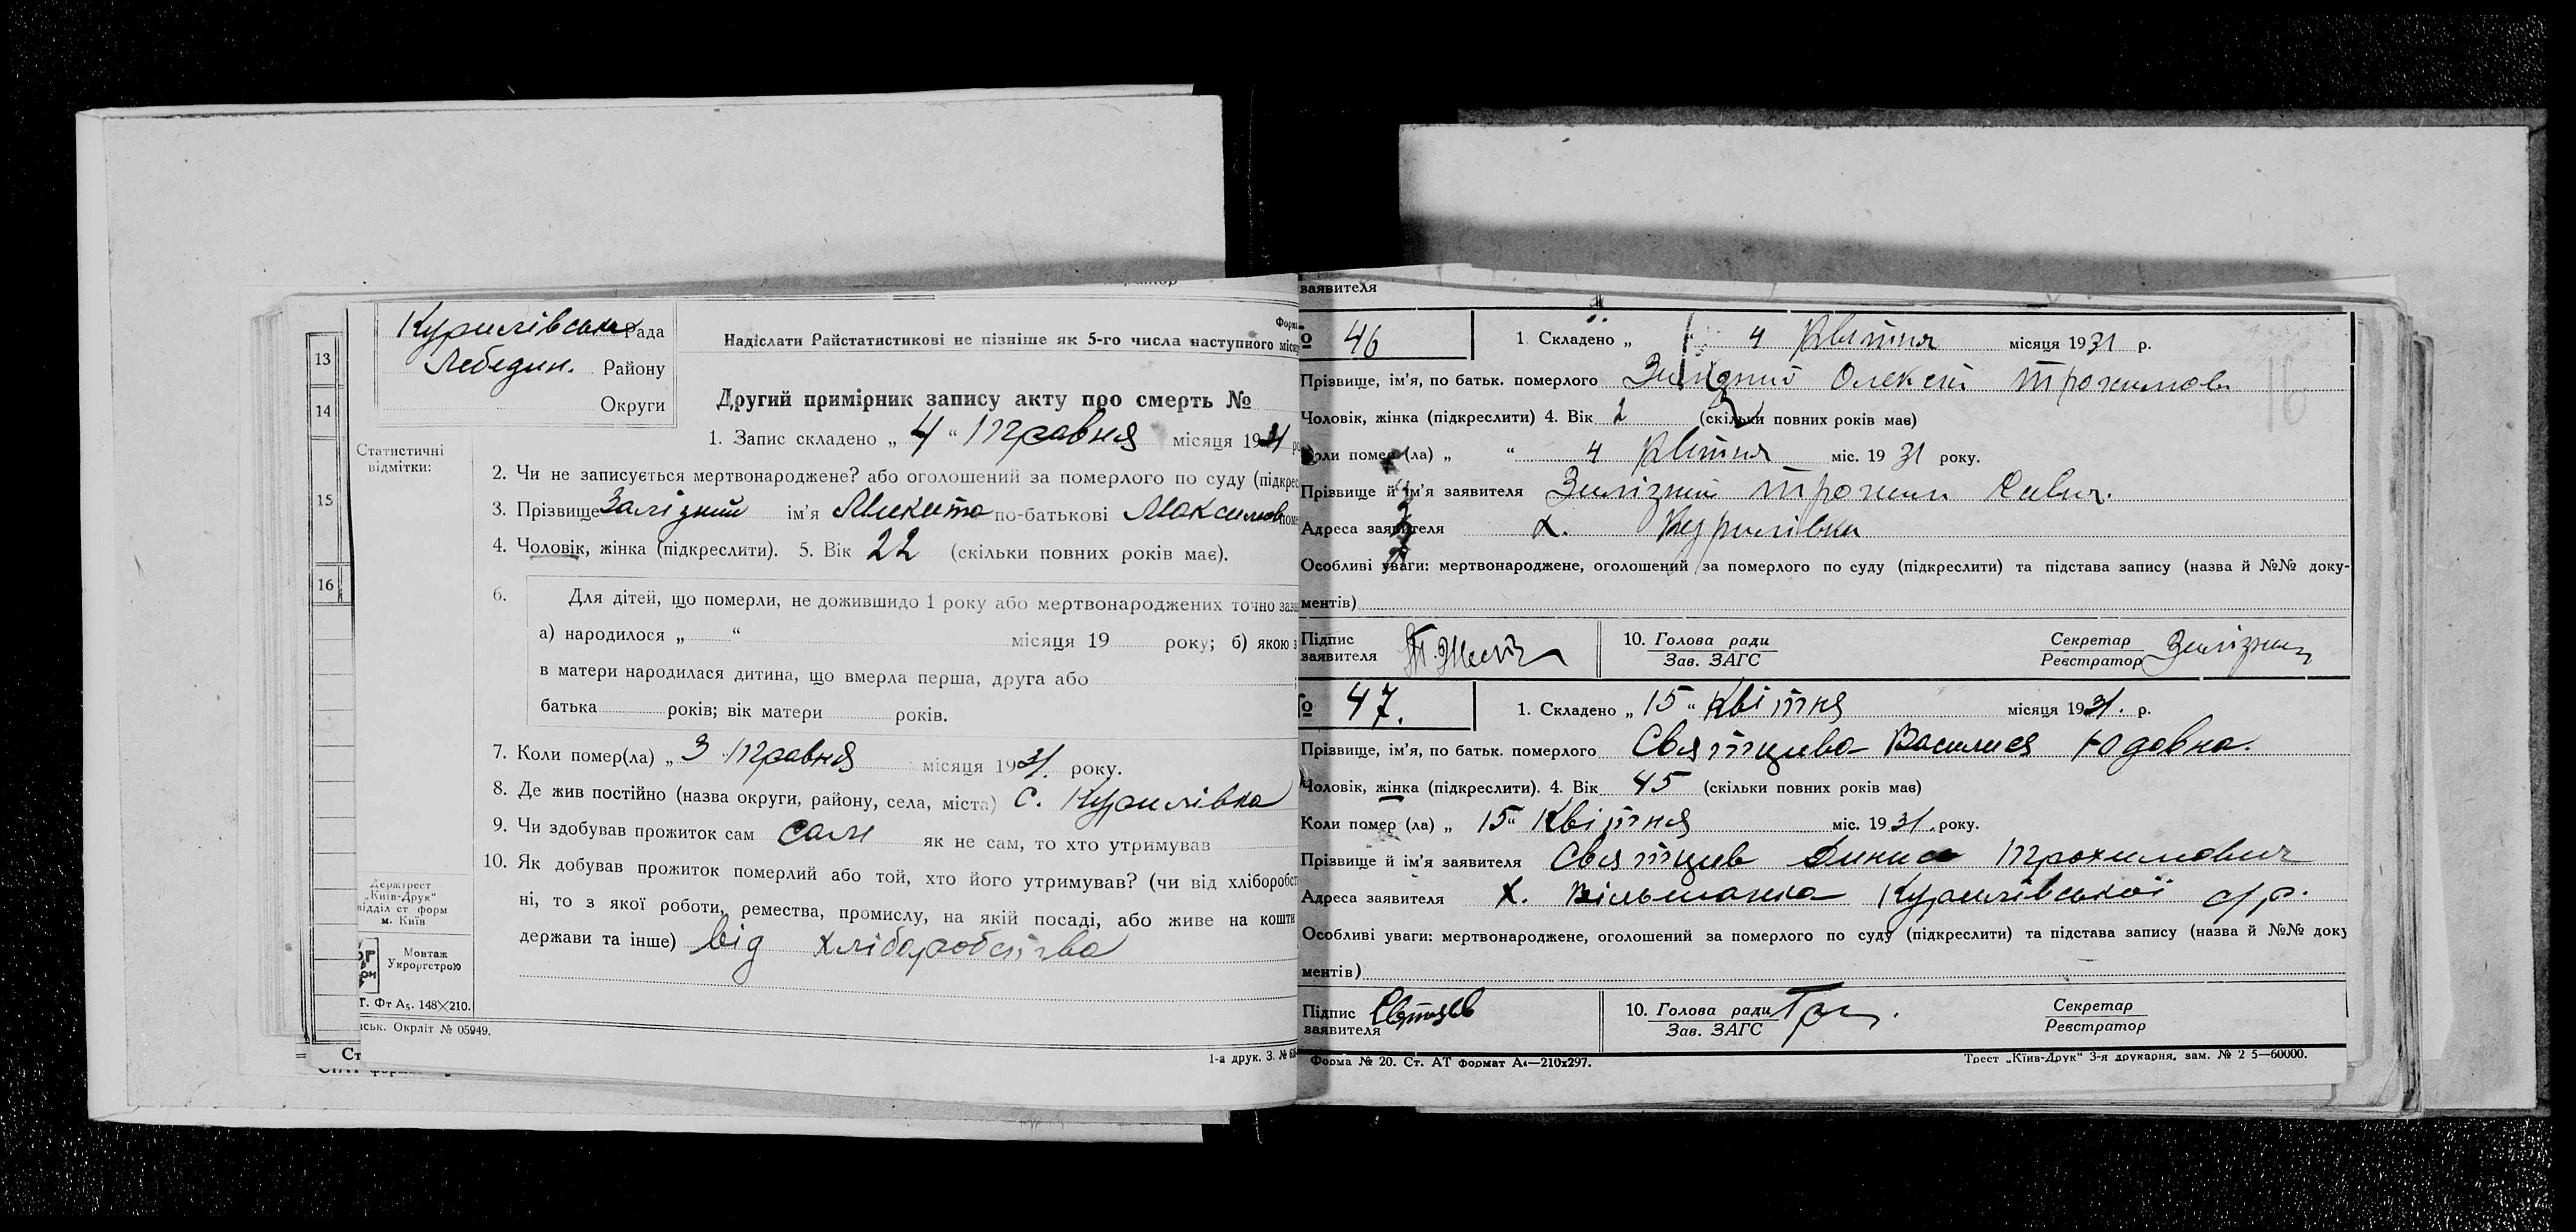 13
14
15
16
Курилівськ Рада
Лебедин. Району
Округи
Статистичні
відмітки:
Надіслати Райстатистикові не пізніше як 5-го числа наступного
Другий примірник запису акту про смерть №
1. Запис складено „ 4 “ травня місяця 1931
2. Чи не записується мертвонароджене? або оголошений за померлого по суду
3. Прізвище Залізний ім'я Микита по-батькові Максимов
4. Чоловік, жінка (підкреслити). 5. Вік 22 (скільки повних років має).
6. Для дітей, що померли, не дожившидо 1 року або мертвонароджених точно
а) народилося „ “ місяця 19 року; б) якою
в матери народилася дитина, що вмерла перша, друга або
батька років; вік матери років.
7. Коли помер(ла) „ 3 травня місяця 1931. року.
8. Де жив постійно (назва округи, району, села, міста) с. Курилівка
9. Чи здобував прожиток сам сам як не сам, то хто утримував
10. Як добував прожиток померлий або той, хто його утримував? (чи від
ні, то з якої роботи, ремества, промислу, на якій посаді, або живе на кошти
держави та інше) від хліборобства
Держтрест
„Київ-Друк“
відділ ст форм
м. Київ
Монтаж
Укроргстрою
Фт А5. 148×210.
Окрліт № 05949.
1-а друк. З. №
заявителя
46 1. Складено „ 4 Квітня місяця 1931 р.
Прізвище, ім'я, по батьк. померлого Залізний Олексій Трохимов
Чоловік, жінка (підкреслити) 4. Вік 2 (скільки повних років має)
Коли помер (ла) „ “ 4 Квітня міс. 1931 року.
Прізвище й ім'я заявителя Залізний Трохим Савич.
Адреса заявителя х. Курилівка
Особливі уваги: мертвонароджене, оголошений за померлого по суду (підкреслити) та підстава запису (назва й №№ доку-
ментів)
Підпис
заявителя
10. Голова ради
Зав. ЗАГС
Секретар
Реєстратор Залізний
47. 1. Складено „ 15 “ Квітня місяця 1931. р.
Прізвище, ім'я, по батьк. померлого Святцева Василися Юдовна.
Чоловік, жінка (підкреслити). 4. Вік 45 (скільки повних років має)
Коли помер (ла) „ 15 “ Квітня міс. 1931. року.
Прізвище й ім'я заявителя Святцев Динис Трохимович
Адреса заявителя х. Вільшанка Курилівської с/р.
Особливі уваги: мертвонароджене, оголошений за померлого по суду (підкреслити) та підстава запису (назва й №№ доку
ментів)
Підпис
заявителя Святцев
10. Голова ради
Зав. ЗАГС
Секретар
Реєстратор
Форма № 20. Ст. АТ формат А4—210х297.
Трест „Київ-Друк“ 3-я друкарня, зам. № 2 5—60000.